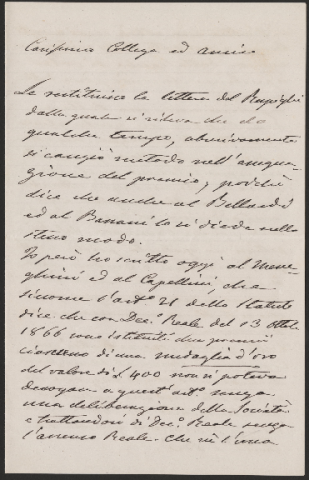 Carissimo Collega ed amico
Le restituisco la lettera del Ruspighi
dalla quale si rileva che da
qualche tempo, abusivamente
si cangiò metodo nell'
gione del premio, poichè
dice che anche al Bellardi
ed al Bassani lo si diede nello
stesso modo.
Io però ho scritto oggi al Mene-
ghini ed al Capellini, che
siccome l'art.º 21 dello Statuto
dice che con Dec.º Reale del 13 Ottobre
1866 sono istituiti due premi
ciascuno di una medaglia d'oro
del valore di £ 400 non si poteva
derogare a quest'art.º senza
una deliberazione della Società
e trattandosi di Dec.º Reale senza
l'assenso Reale. Che nè l'una